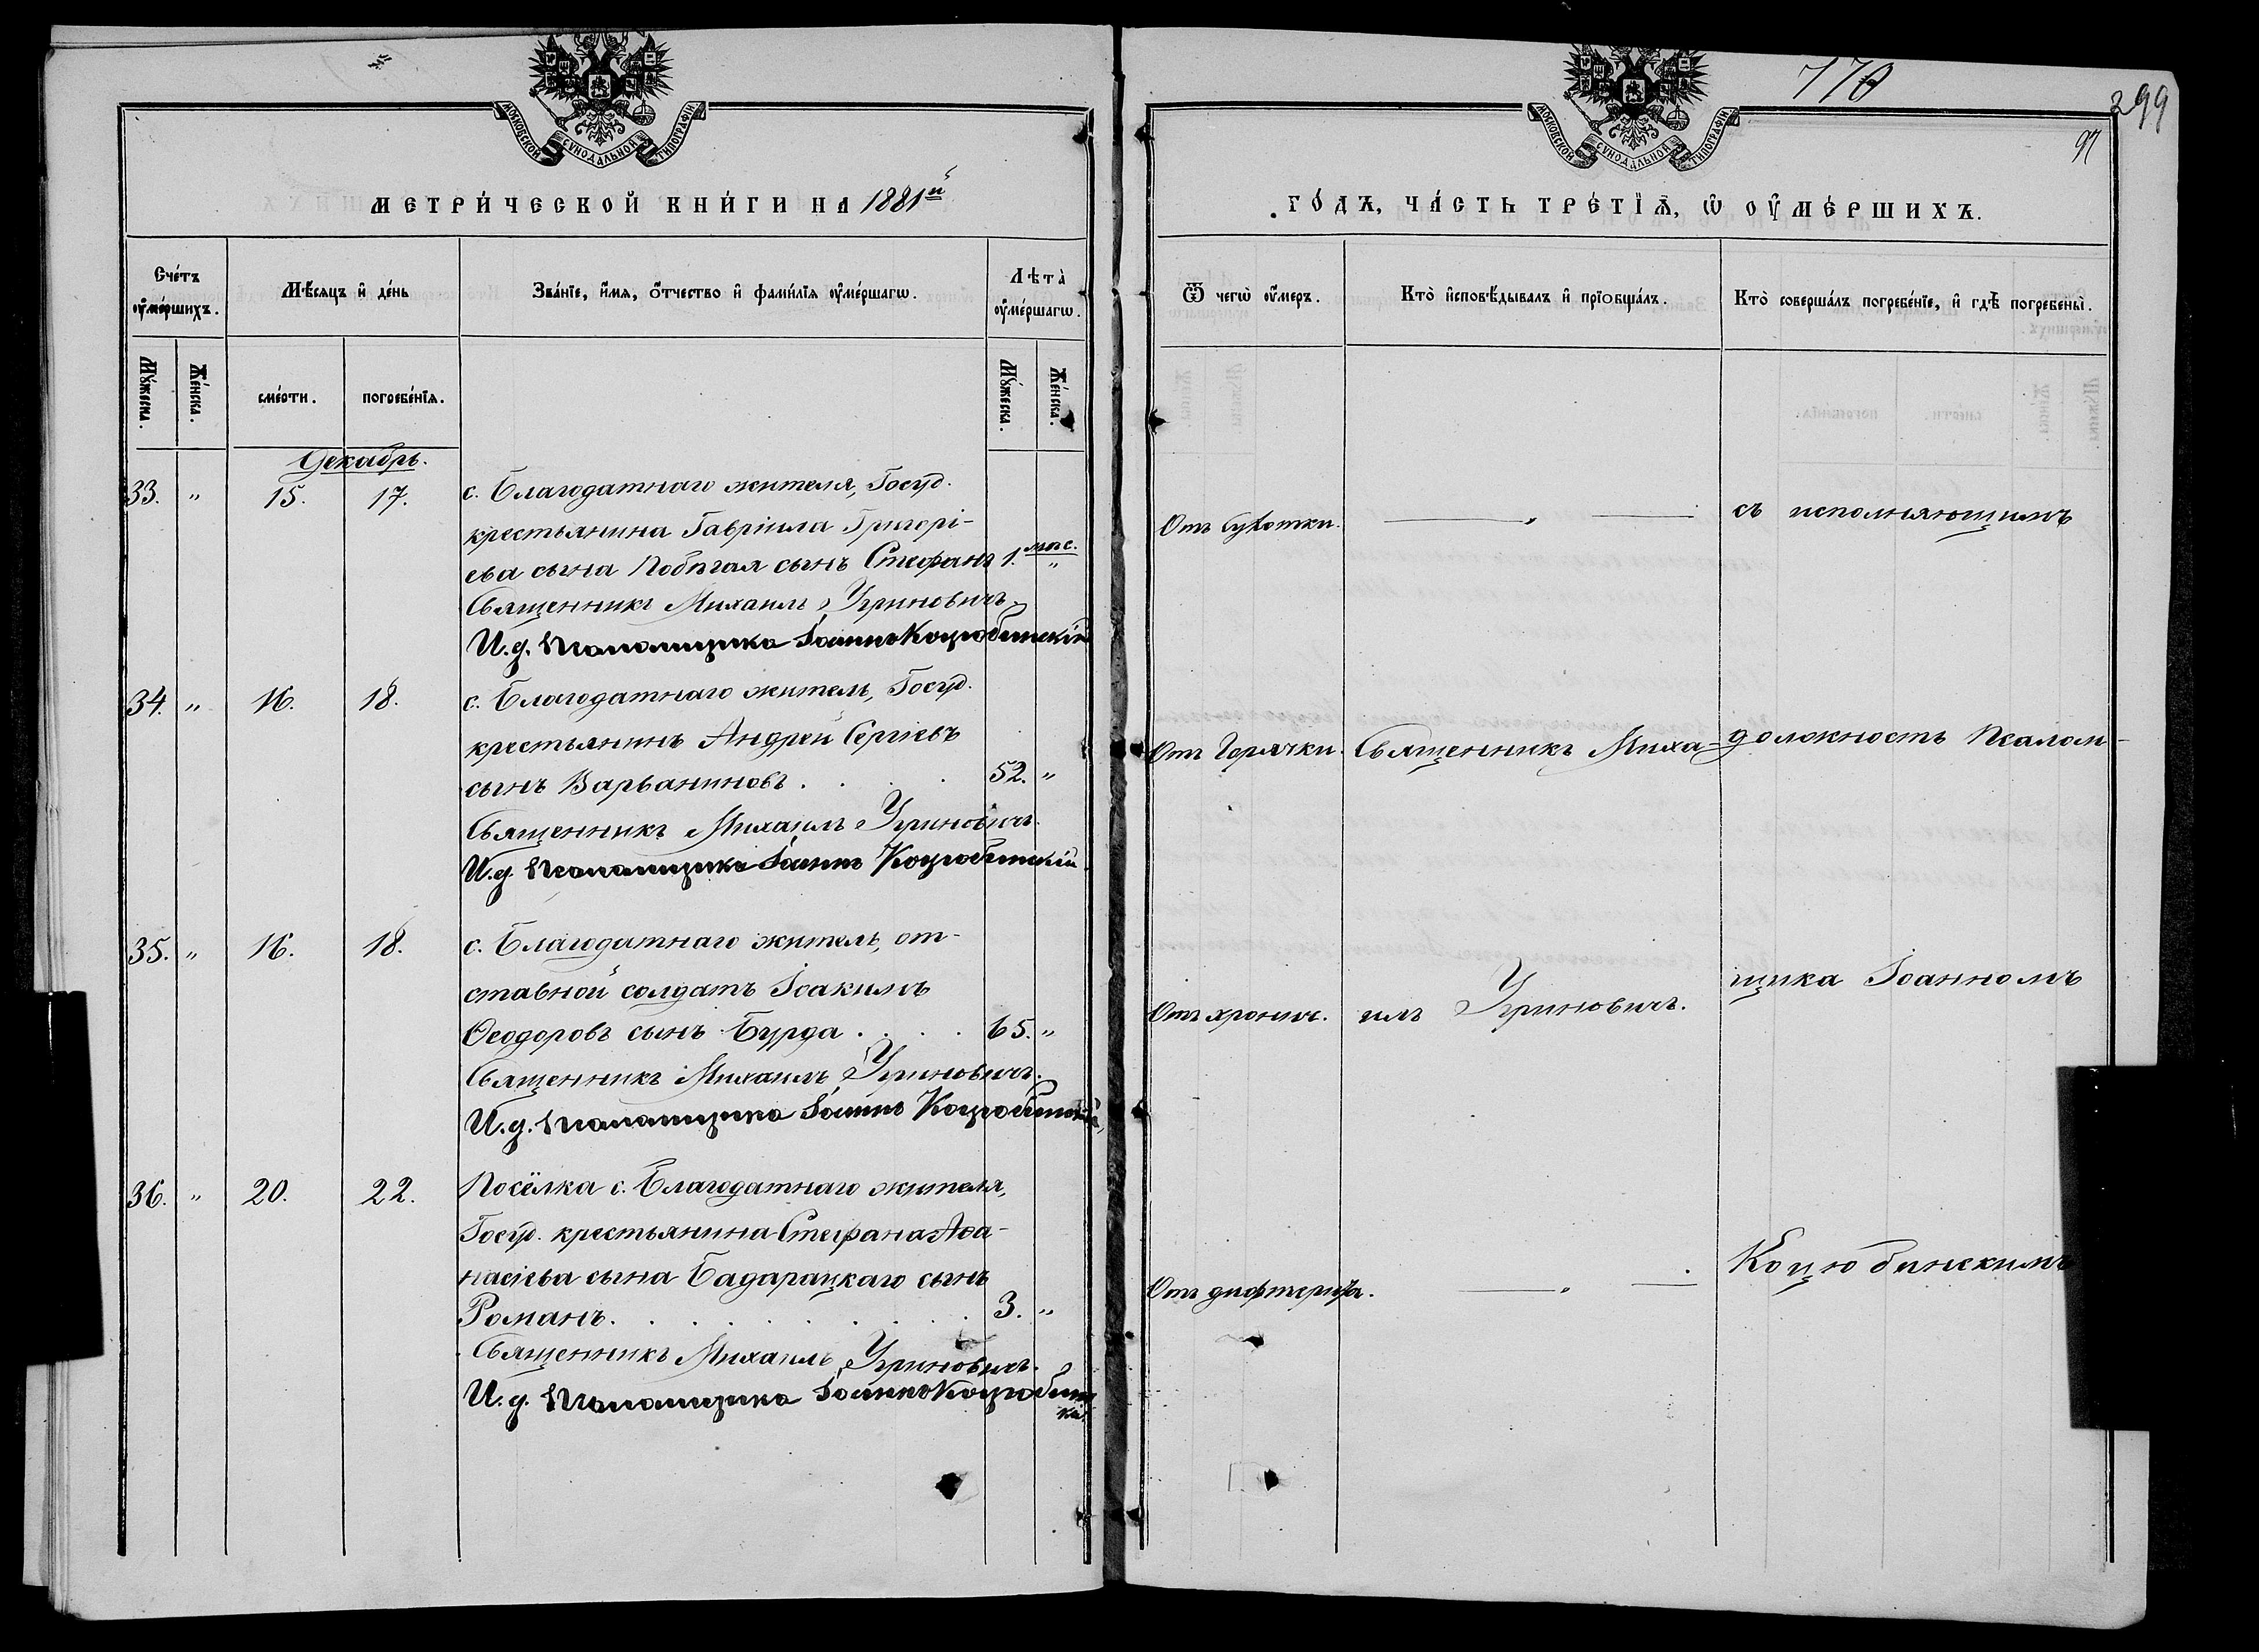 МОСКОВСКОЙ СѴНОДАЛЬНОЙ ТИПОГРАФІИ
МЕТРИ́ЧЕСКОЙ КНИ́ГИ НА 1881й
Сче́тъ ᲂу҆ме́ршихъ.
Мѣ́сяцъ и҆ де́нь
Зва́нїе, и҆́мѧ, ѻ҆́тчество и҆ фами́лїѧ ᲂу҆ме́ршагѡ.
Лѣ́та̀ ᲂу҆ме́ршагѡ.
Мꙋ́жеска.
Же́нска.
сме́рти.
погребе́нїѧ.
Мꙋ́жеска.
Же́нска.
Декабрь.
33. " 15. 17. с. Благодатнаго жителя, Госуд.
крестьянина Гавріила Григорі-
ева сына Побѣгая сынъ Стефанъ 1. мѣс. "
Священникъ Михаилъ Угриновичъ.
И. д. Псаломщика Іоаннъ Коцюбинскій
34. " 16. 18. с. Благодатнаго житель, Госуд.
крестьянинъ Андрей Сергіевъ
сынъ Варваниновъ . . . 52. "
Священникъ Михаилъ Угриновичъ.
И. д. Псаломщика Іоаннъ Коцюбинскій
35. " 16. 18. с. Благодатнаго житель, от-
ставной солдатъ Іоакимъ
Ѳеодоровъ сынъ Бурда . . . . 65. "
Священникъ Михаилъ Угриновичъ.
И. д. Псаломщика Іоаннъ Коцюбинскій
36. " 20. 22. Посёлка с. Благодатнаго жителя,
Госуд. крестьянина Стефана Аѳа-
насіева сына Бадарацкаго сынъ
Романъ. . . . . . . . 3. "
Священникъ Михаилъ Угриновичъ.
И. д. Псаломщика Іоаннъ Коцюбин
скій
МОСКОВСКОЙ СѴНОДАЛЬНОЙ ТИПОГРАФІИ
770
299
97
ГО́ДЪ, ЧА́СТЬ ТРЕ́ТЇѦ, Ѡ҆ ОУ҆МЕ́РШИХЪ.
Ѿ чегѡ̀ ᲂу҆́меръ.
Кто̀ и҆сповѣ́дывалъ и҆ прїѻбща́лъ.
Кто̀ соверша́лъ погребе́нїе, и҆ гдѣ̀ погребены̀.
Отъ Сухотки. — " — съ исполняющимъ
Отъ Горячки. Священникъ Миха- должность Псалом-
Отъ хронич. илъ Угриновичъ. щика Іоанномъ
Отъ дифтерита. — " — Коцюбинскимъ